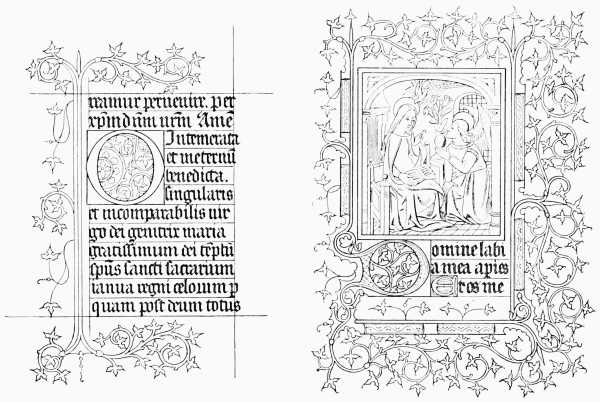 ramur peruenire. Per
xp̄m dn̄m nr̄m. Amē
O Intemerata
et in eternū
benedicta.
singularis
et incomparabilis uir
go dei genitrix maria
gratissimum dei tēplū
spūs sancti sacrarium
ianua regni celorum p
quam post deum totus
Domine labi
a mea apies
Et os me